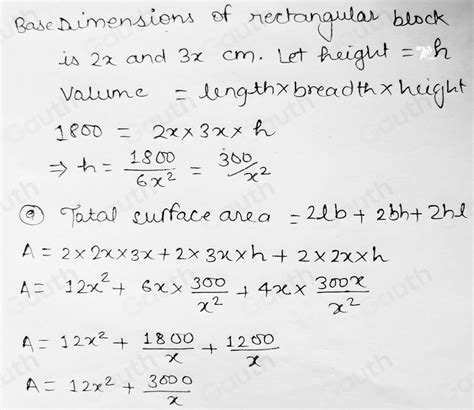 Base Dimensions of rectangular block
is 2x and 3x cm. Let height = h
Valume = length×breadth×height
1800 = 2x×3x×h
⇒ h = 1800/6x² = 300/x²
ⓐ Total surface area = 2lb + 2bh + 2hl
A = 2×2x×3x + 2×3x×h + 2×2x×h
A = 12x² + 6x × 300/x² + 4x × 300x/x²
A = 12x² + 1800/x + 1200/x
A = 12x² + 3000/x